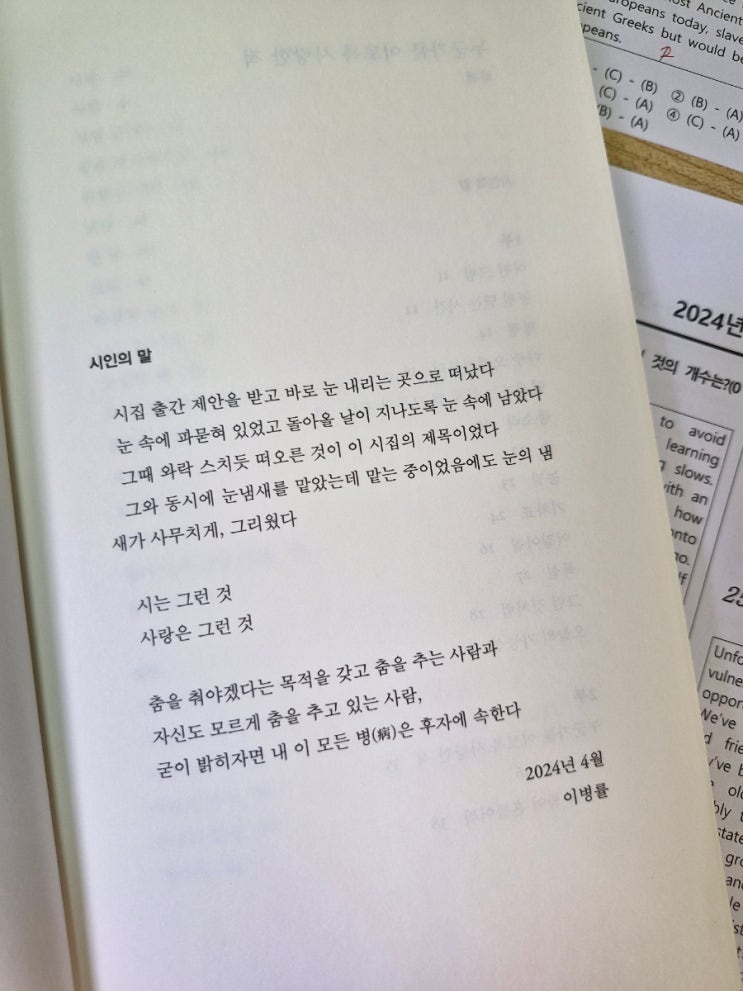 시인의 말
시집 출간 제안을 받고 바로 눈 내리는 곳으로 떠났다
눈 속에 파묻혀 있었고 돌아올 날이 지나도록 눈 속에 남았다
그때 와락 스치듯 떠오른 것이 이 시집의 제목이었다
그와 동시에 눈냄새를 맡았는데 맡는 중이었음에도 눈의 냄
새가 사무치게, 그리웠다
시는 그런 것
사랑은 그런 것
춤을 춰야겠다는 목적을 갖고 춤을 추는 사람과
자신도 모르게 춤을 추고 있는 사람,
굳이 밝히자면 내 이 모든 병(病)은 후자에 속한다
2024년 4월
이병률
ost Ancient
uropeans today, slave
cient Greeks but would be
peans.
- (C) - (B) ② (B) - (A)
(C) - (A) ④ (C) - (A)
(B) - (A)
2024년
것의 개수는?(0
to avoid
learning
slows.
with an
how
onto
no.
25
Unfo
vulne
oppor
We've
d frie
've b
old
bly t
state
gro
and
le